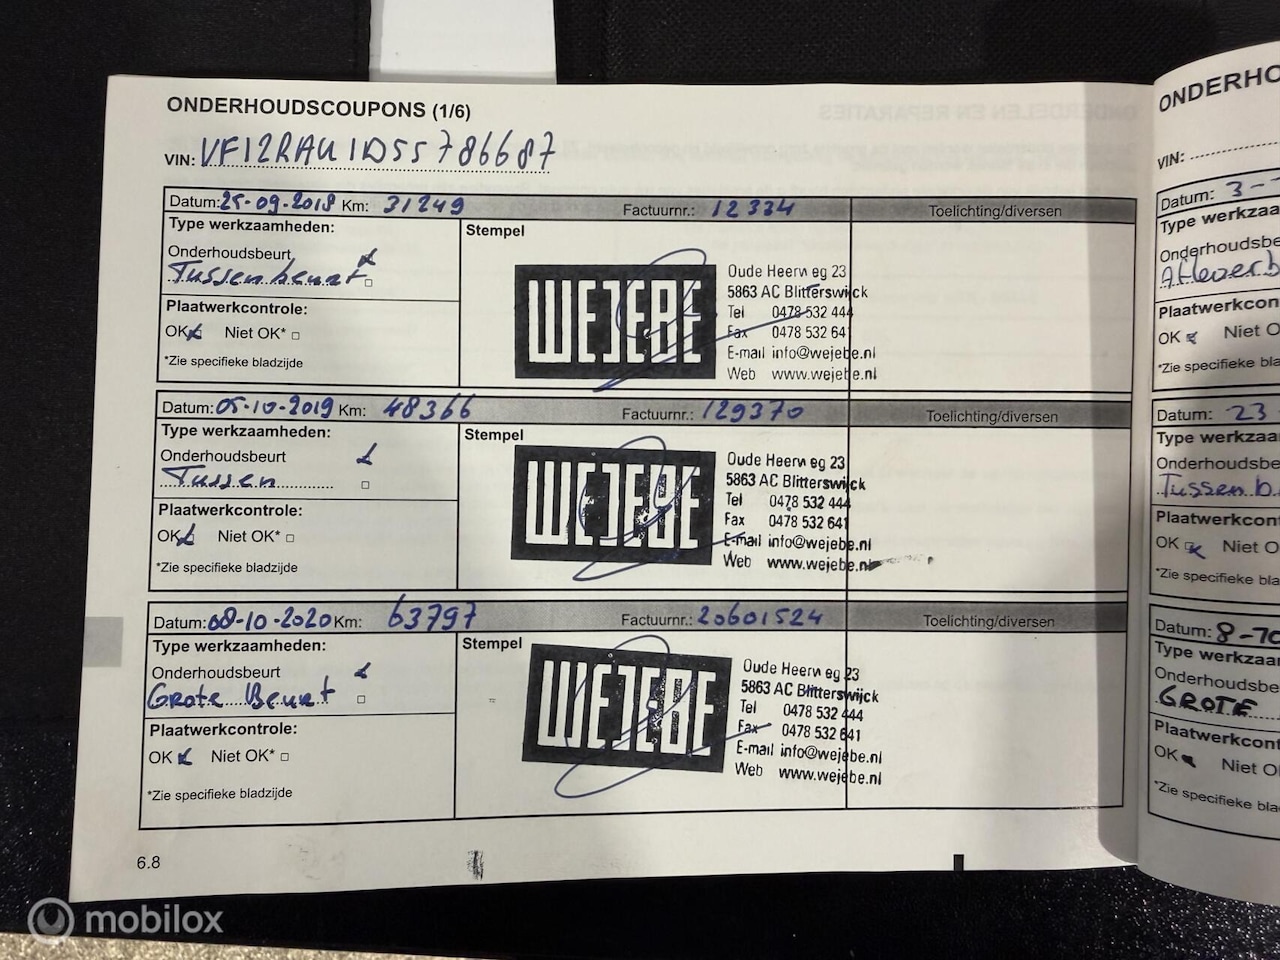 ONDERHOUDSCOUPONS (1/6)
VIN: VF12RAU1D55786687
Datum: 25-09-2018 Km: 31249 Factuurnr.: 12334 Toelichting/diversen
Type werkzaamheden:
Stempel
Onderhoudsbeurt
Tussenbeurt
Plaatwerkcontrole:
OK Niet OK*
*Zie specifieke bladzijde
WEJEBE
Oude Heerweg 23
5863 AC Blitterswijck
Tel 0478 532 444
Fax 0478 532 641
E-mail info@wejebe.nl
Web www.wejebe.nl
Datum: 05-10-2019 Km: 48366 Factuurnr.: 129370 Toelichting/diversen
Type werkzaamheden:
Stempel
Onderhoudsbeurt
Tussen
Plaatwerkcontrole:
OK Niet OK*
*Zie specifieke bladzijde
WEJEBE
Oude Heerweg 23
5863 AC Blitterswijck
Tel 0478 532 444
Fax 0478 532 641
E-mail info@wejebe.nl
Web www.wejebe.nl
Datum: 08-10-2020 Km: 63797 Factuurnr.: 20601524 Toelichting/diversen
Type werkzaamheden:
Stempel
Onderhoudsbeurt
Grote Beurt
Plaatwerkcontrole:
OK Niet OK*
*Zie specifieke bladzijde
WEJEBE
Oude Heerweg 23
5863 AC Blitterswijck
Tel 0478 532 444
Fax 0478 532 641
E-mail info@wejebe.nl
Web www.wejebe.nl
6.8
ONDERHO
VIN:
Datum: 3-
Type werkzaa
Onderhoudsbe
Afleverb
Plaatwerkcon
OK Niet O
*Zie specifieke bla
Datum: 23
Type werkzaa
Onderhoudsbe
Tussenb
Plaatwerkcont
OK Niet O
*Zie specifieke bla
Datum: 8-10
Type werkzaam
Onderhoudsbe
GROTE
Plaatwerkcont
OK Niet O
*Zie specifieke bla
mobilox